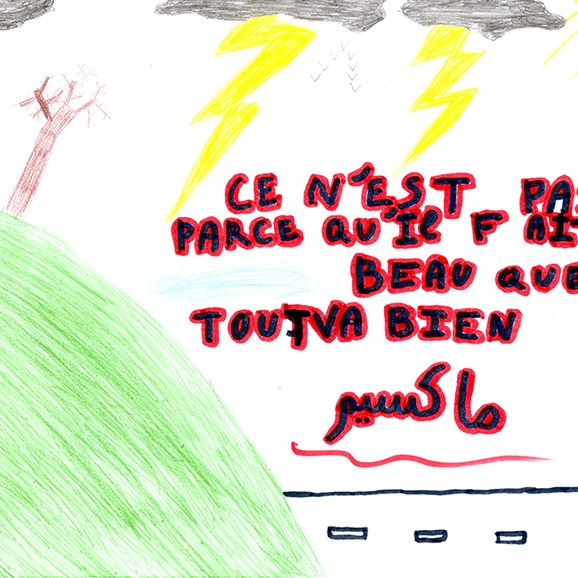 CE N'EST PAS
PARCE QU'IL FAIT
BEAU QUE
TOUT VA BIEN
ماكسيم